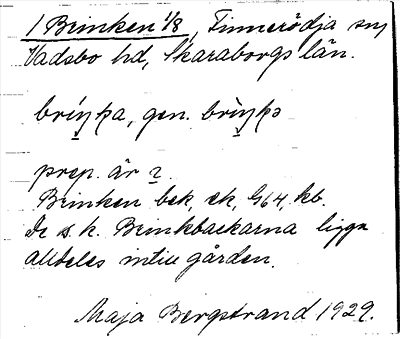 1 Brinken 1/8, Finnerödja sn,
Vadsbo hd, Skaraborgs län.
bríŋka, gen. brìŋkə
prep. är 2.
Brinken bek, ek, G64, kb.
De s. k. Brinkbackarna ligga
alldeles intill gården.
Maja Bergstrand 1929.